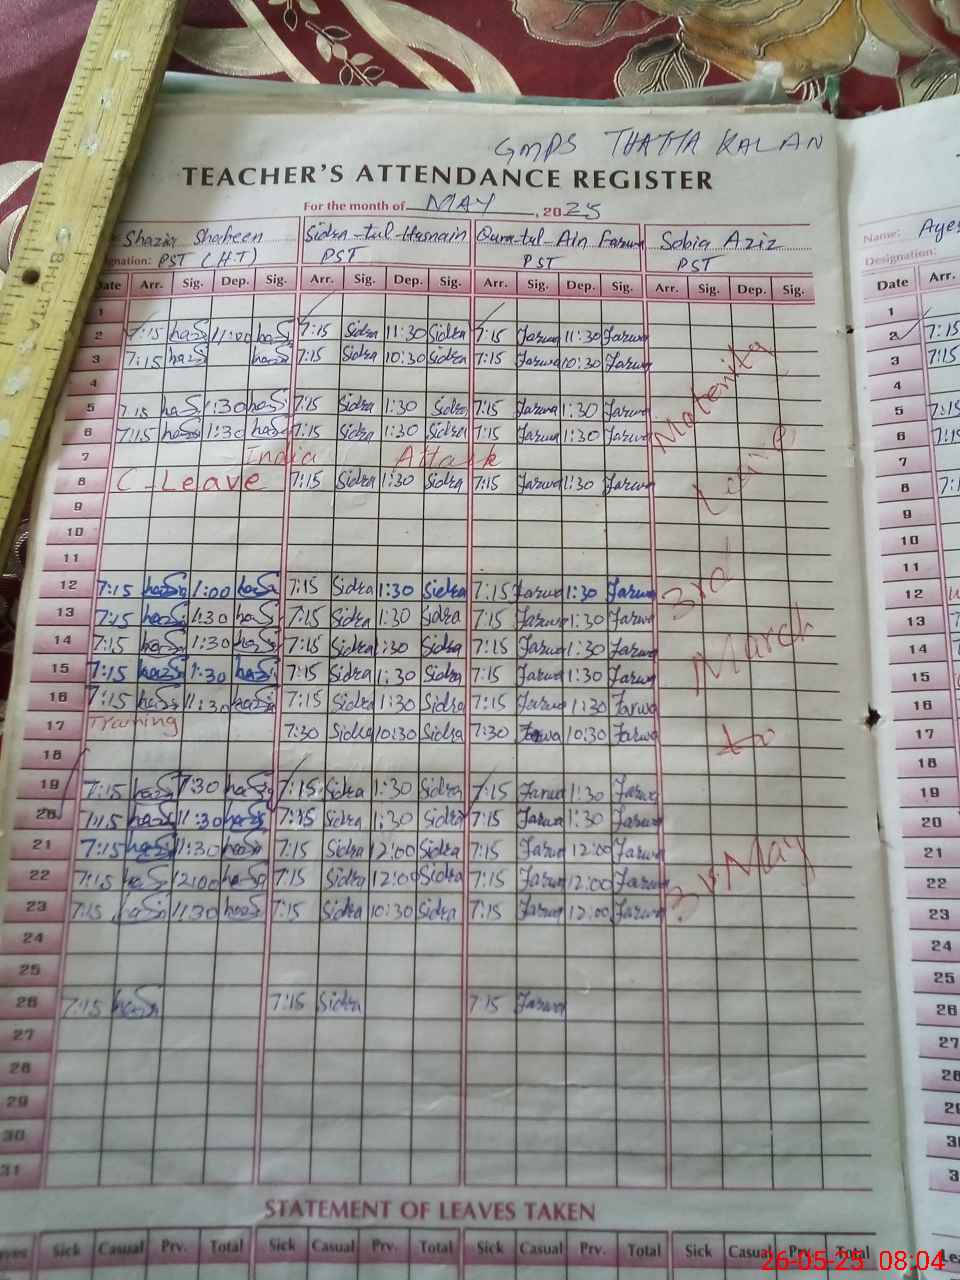 GMPS THATTA KALAN
TEACHER'S ATTENDANCE REGISTER
For the month of MAY, 2025
Shazia Shaheen Sidra-tul-Hasnain Qurra-tul-Ain Farwa Sobia Aziz Name: Ayes
gnation: PST (H.T) PST PST PST Designation:
Date Arr. Sig. Dep. Sig. Arr. Sig. Dep. Sig. Arr. Sig. Dep. Sig. Arr. Sig. Dep. Sig. Date Arr.
1 1
2 7:15 11:00 7:15 Sidra 11:30 Sidra 7:15 Farwa 11:30 Farwa 2 7:15
3 7:15 7:15 Sidra 10:30 Sidra 7:15 Farwa 10:30 Farwa Maternity 3 7:15
4 4
5 7:15 1:30 7:15 Sidra 1:30 Sidra 7:15 Farwa 1:30 Farwa 5 7:15
6 7:15 1:30 7:15 Sidra 1:30 Sidra 7:15 Farwa 1:30 Farwa Leave 6 7:15
7 India Attack 7
8 C-Leave 7:15 Sidra 1:30 Sidra 7:15 Farwa 1:30 Farwa 8
9 9
10 10
11 11
12 7:15 1:00 7:15 Sidra 1:30 Sidra 7:15 Farwa 1:30 Farwa 3rd 12
13 7:15 1:30 7:15 Sidra 1:30 Sidra 7:15 Farwa 1:30 Farwa 13
14 7:15 1:30 7:15 Sidra 1:30 Sidra 7:15 Farwa 1:30 Farwa March 14
15 7:15 1:30 7:15 Sidra 1:30 Sidra 7:15 Farwa 1:30 Farwa 15
16 7:15 1:30 7:15 Sidra 1:30 Sidra 7:15 Farwa 1:30 Farwa 16
17 Training 7:30 Sidra 10:30 Sidra 7:30 Farwa 10:30 Farwa to 17
18 18
19 7:15 1:30 7:15 Sidra 1:30 Sidra 7:15 Farwa 1:30 Farwa 19
20 7:15 1:30 7:15 Sidra 1:30 Sidra 7:15 Farwa 1:30 Farwa 20
21 7:15 11:30 7:15 Sidra 12:00 Sidra 7:15 Farwa 12:00 Farwa May 21
22 7:15 12:00 7:15 Sidra 12:00 Sidra 7:15 Farwa 12:00 Farwa 22
23 7:15 11:30 7:15 Sidra 10:30 Sidra 7:15 Farwa 12:00 Farwa 23
24 24
25 25
26 7:15 7:15 Sidra 7:15 Farwa 26
27 27
28 28
29 29
30 30
31 3
STATEMENT OF LEAVES TAKEN
Sick Casual Prv. Total Sick Casual Prv. Total Sick Casual Prv. Total Sick Casual Prv. Total
26-05-25 08:04